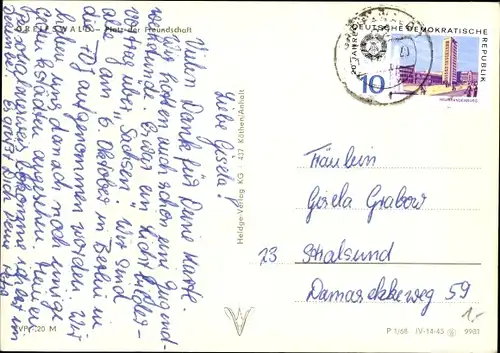 GREIFSWALD – Platz der Freundschaft
Liebe Gisela!
Vielen Dank für Deine Karte.
Wir hatten auch schon eine Jugend-
stunde. Es war ein Lichtbilder-
vortrag über "Sachsen". Wir sind
am 6. Oktober in Berlin in
die FDJ aufgenommen worden. Wir
haben uns danach noch einige
angesehen.
bekomme ich erst im
Es grüßt Dich Deine
VP –,20 M
Heldge-Verlag KG · 437 Köthen/Anhalt
20 JAHRE DDR
DEUTSCHE DEMOKRATISCHE
REPUBLIK
10
NEUBRANDENBURG
Fräulein
Gisela Grabow
23 Stralsund
Damaschkeweg 59
1,-
P 1/68 IV-14-45 9981